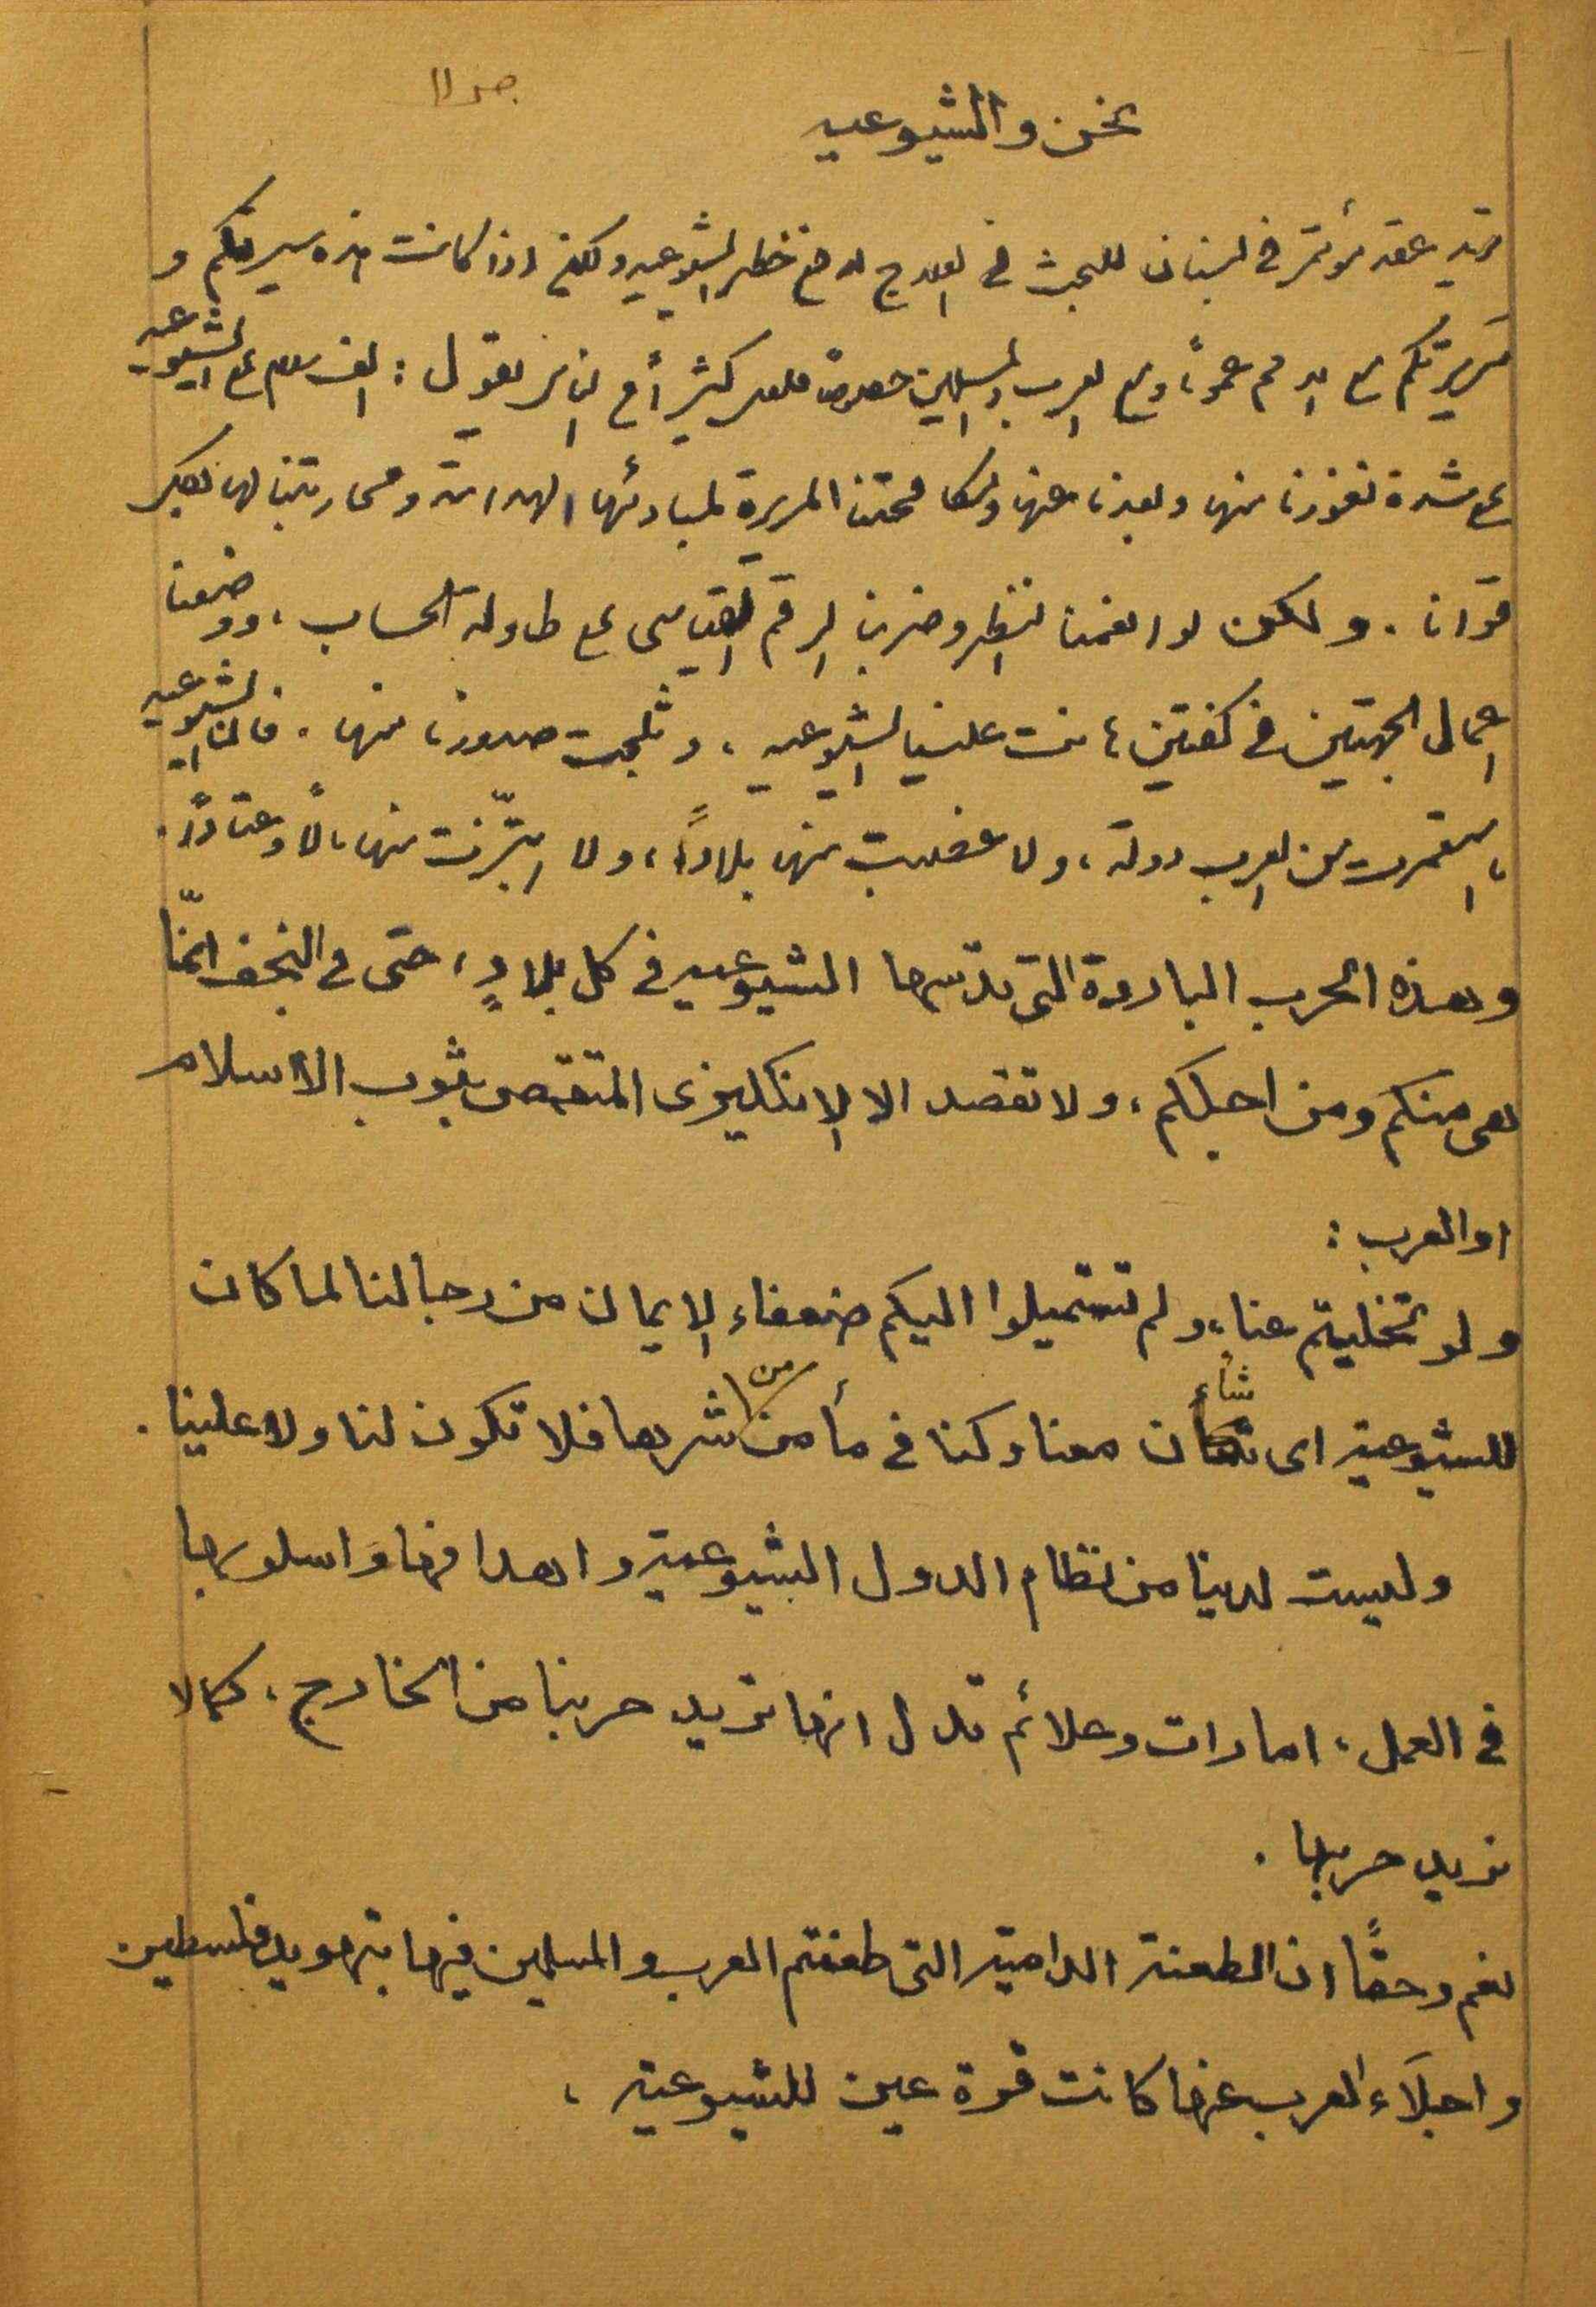 ص ١١
نحن والشيوعيه
تريد عقد مؤتمر في لبنان للبحث في العلاج لدفع خطر الشيوعيه ولكن اذا كانت هذه سيرتكم و
سريرتكم مع الامم عموماً ومع العرب والمسلمين خصوصاً فلعل كثيراً من الناس يقول : الف سلام على الشيوعيه
على شدة نفورنا منها وبعدنا عنها ومكافحتنا المريرة لمبادئها الهدامة ومحاربتنا لها بكل
قوانا . ولكن لو انعمنا النظر وضربنا الرقم القياسى على طاولة الحساب ، ووضعنا
اعمال الجهتين في كفتين ما نت علينا الشيوعيه ، وثلجت صدورنا منها . فان الشيوعيه
ما استعمرت من العرب دولة ، ولا غصبت منها بلاداً ، ولا ابتزّت منها مالاً وعتاداً .
وهذه الحرب الباردة التى تدسها الشيوعيه في كل بلادٍ ، حتى في النجف انمّا
هى منكم ومن اجلكم ، ولا تقصد الا الإنكليزى المتقمص بثوب الاسلام
او العرب :
ولو تخليتم عنا ، ولم تستميلوا اليكم ضعفاء الإيمان من رجالنا لما كان
للشيوعية اى شأن معنا وكنا في مأمن من شرها فلا تكون لنا ولا علينا .
وليست لدينا من نظام الدول الشيوعية واهدافها واسلوبها
في العمل ، امارات وعلائم تدل انها تريد حربنا من الخارج ، كما لا
نريد حربها .
نعم وحقاً ان الطعنة الدامية التى طعنتم العرب والمسلمين فيها بتهويد فلسطين
واجلاء العرب عنها كانت قرة عين للشيوعية ،